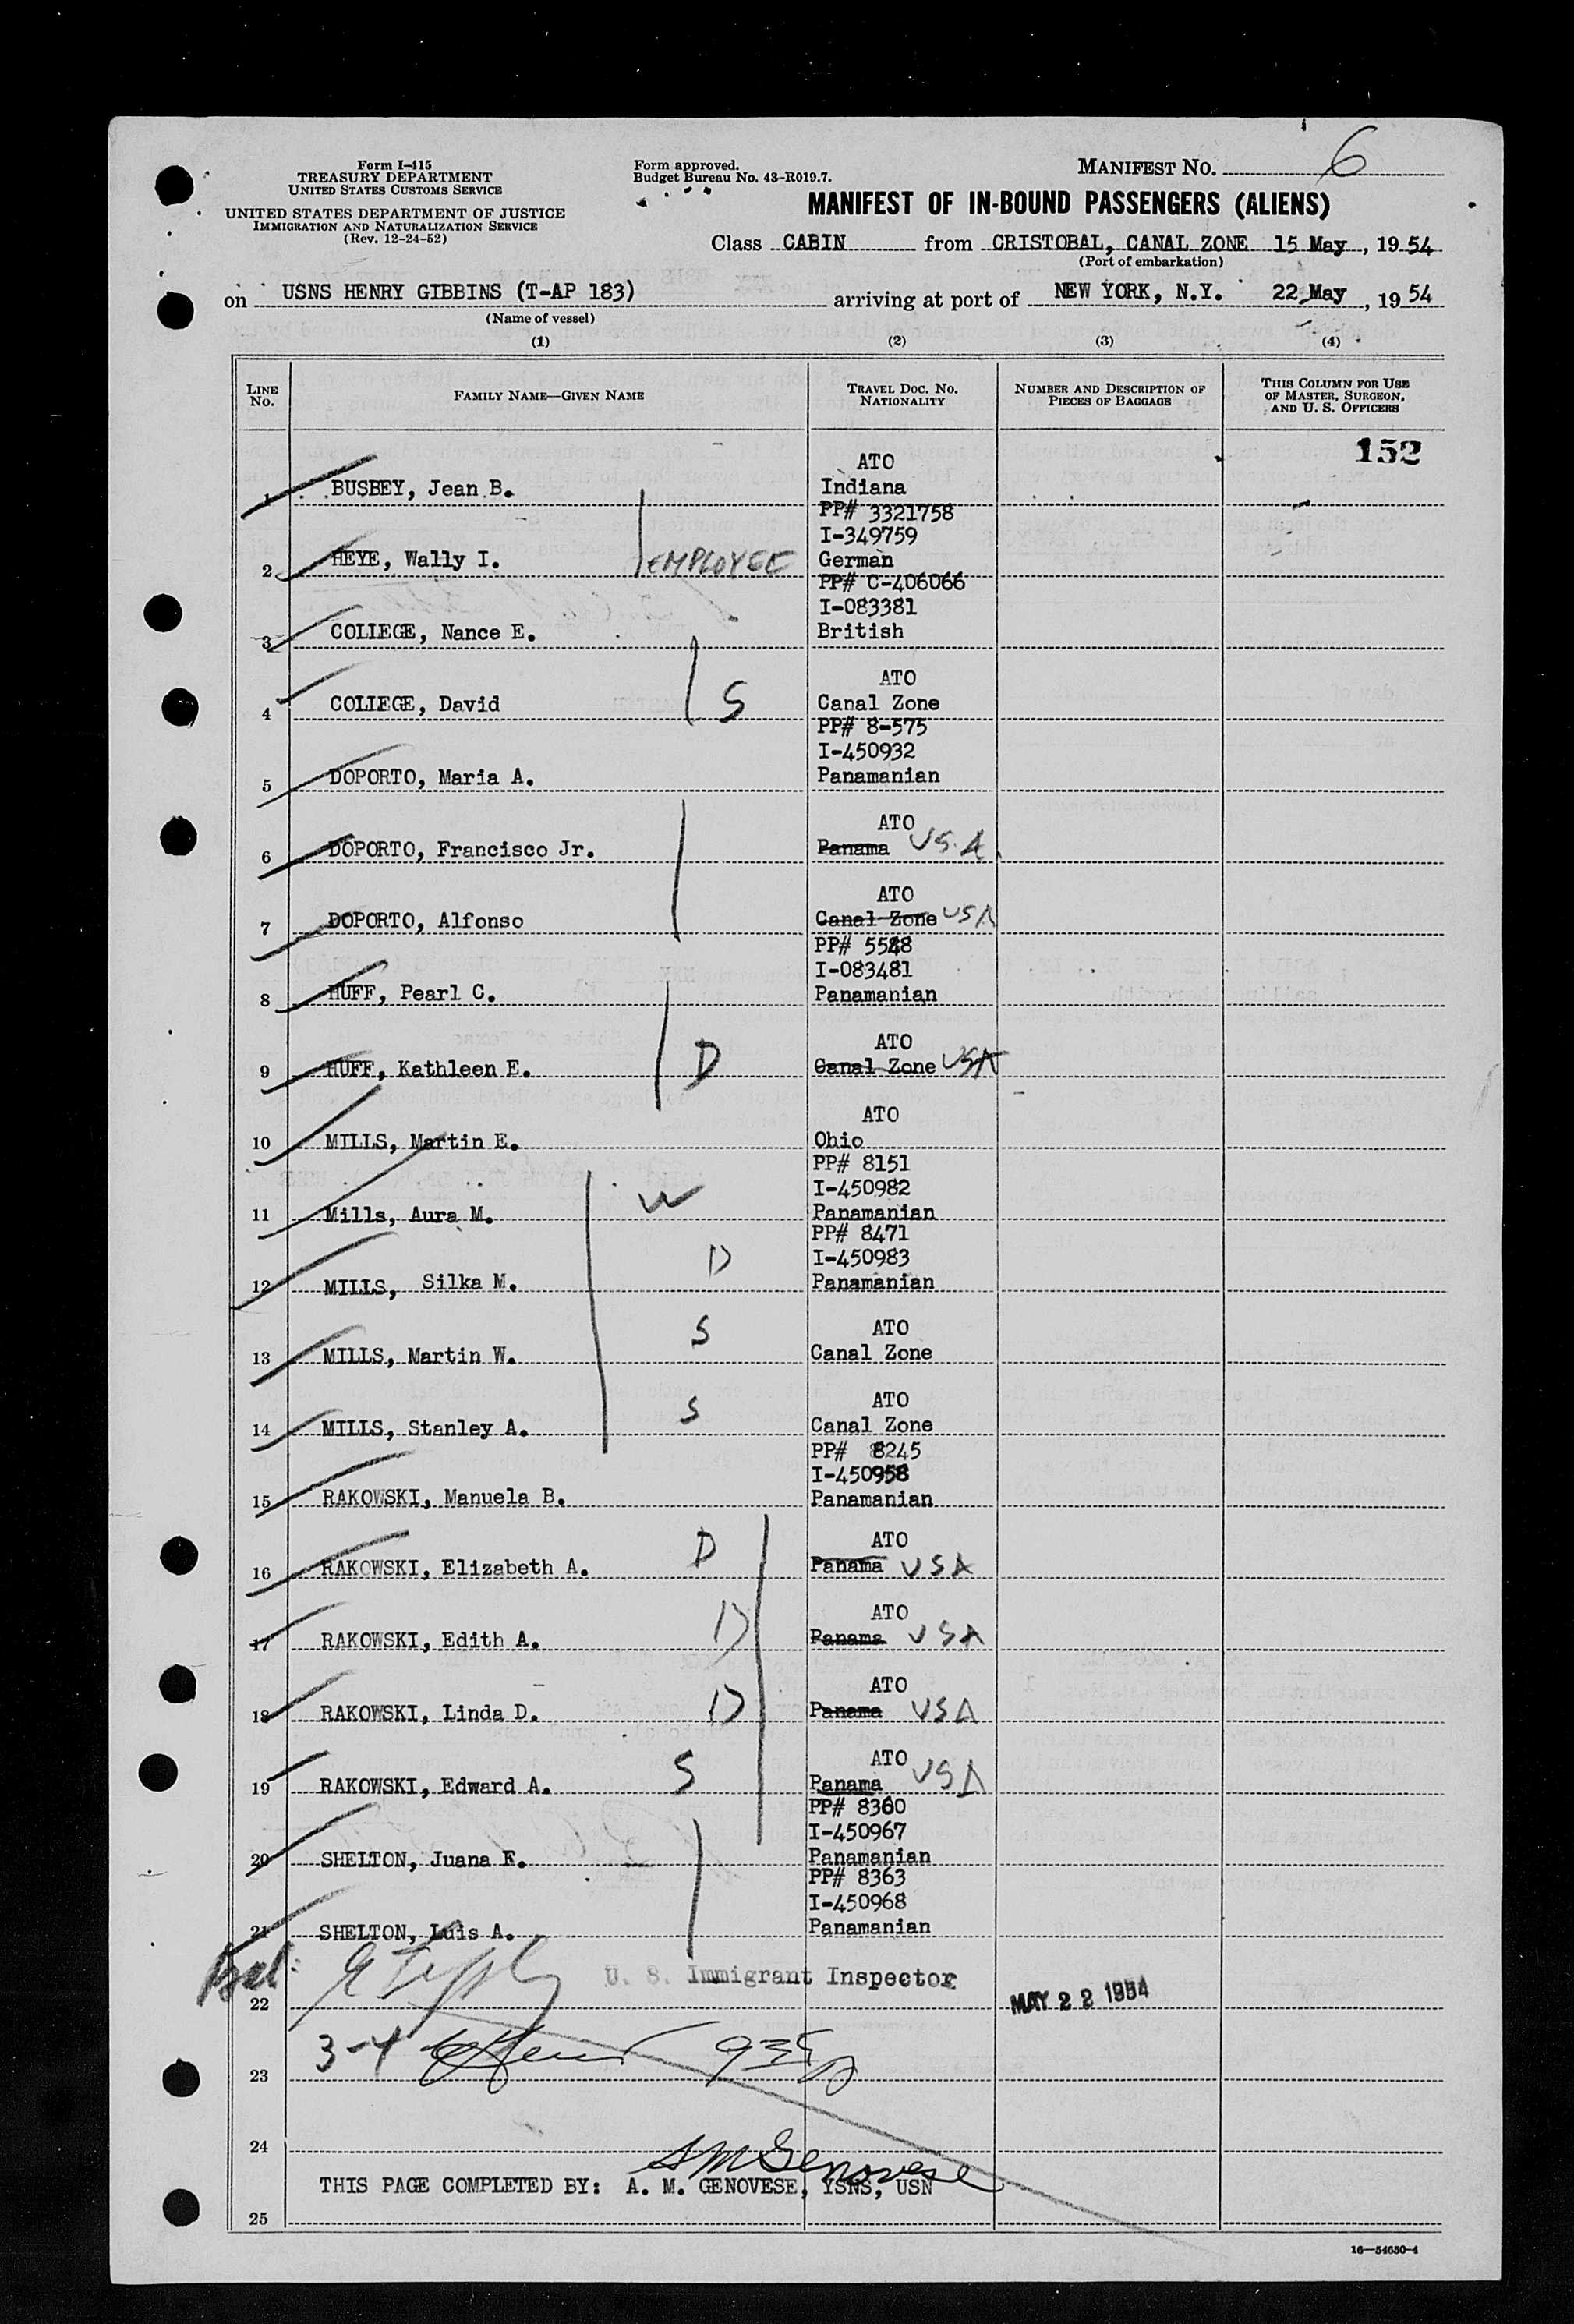 Form I-415
TREASURY DEPARTMENT
UNITED STATES CUSTOMS SERVICE
UNITED STATES DEPARTMENT OF JUSTICE
IMMIGRATION AND NATURALIZATION SERVICE
(Rev. 12-24-52)
Form approved.
Budget Bureau No. 43-R019.7.
MANIFEST NO. 6
MANIFEST OF IN-BOUND PASSENGERS (ALIENS)
Class CABIN from CRISTOBAL, CANAL ZONE 15 May, 1954
(Port of embarkation)
on USNS HENRY GIBBINS (T-AP 183) arriving at port of NEW YORK, N.Y. 22 May, 1954
(Name of vessel)
(1) (2) (3) (4)
LINE NO. FAMILY NAME—GIVEN NAME TRAVEL DOC. NO. NATIONALITY NUMBER AND DESCRIPTION OF PIECES OF BAGGAGE THIS COLUMN FOR USE OF MASTER, SURGEON, AND U. S. OFFICERS
152
ATO
1 BUSBEY, Jean B. Indiana
PP# 3321758
I-349759
2 HEYE, Wally I. EMPLOYEE German
PP# C-406066
I-083381
3 COLLEGE, Nance E. British
ATO
4 COLLEGE, David S Canal Zone
PP# 8-575
I-450932
5 DOPORTO, Maria A. Panamanian
ATO
6 DOPORTO, Francisco Jr. Panama U.S.A.
ATO
7 DOPORTO, Alfonso Canal Zone USA
PP# 5528
I-083481
8 HUFF, Pearl C. Panamanian
ATO
9 HUFF, Kathleen E. D Canal Zone USA
ATO
10 MILLS, Martin E. Ohio
PP# 8151
I-450982
11 Mills, Aura M. W Panamanian
PP# 8471
I-450983
12 MILLS, Silka M. D Panamanian
ATO
13 MILLS, Martin W. S Canal Zone
ATO
14 MILLS, Stanley A. S Canal Zone
PP# 8245
I-450958
15 RAKOWSKI, Manuela B. Panamanian
ATO
16 RAKOWSKI, Elizabeth A. D Panama USA
ATO
17 RAKOWSKI, Edith A. D Panama USA
ATO
18 RAKOWSKI, Linda D. D Panama USA
ATO
19 RAKOWSKI, Edward A. S Panama USA
PP# 8360
I-450967
20 SHELTON, Juana E. Panamanian
PP# 8363
I-450968
21 SHELTON, Luis A. Panamanian
U. S. Immigrant Inspector
22 MAY 22 1954
3-4
23
24 A M Genovese
THIS PAGE COMPLETED BY: A. M. GENOVESE, YSNS, USN
25
16—54650-4